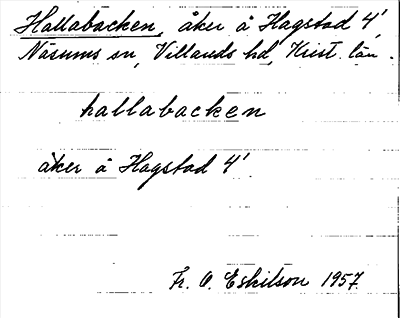 Hallabacken, åker å Hagstad 4¹,
Näsums sn, Villands hd, Krist. län.
hallabacken
åker å Hagstad 4¹.
Fr. O. Eskilson 1957.